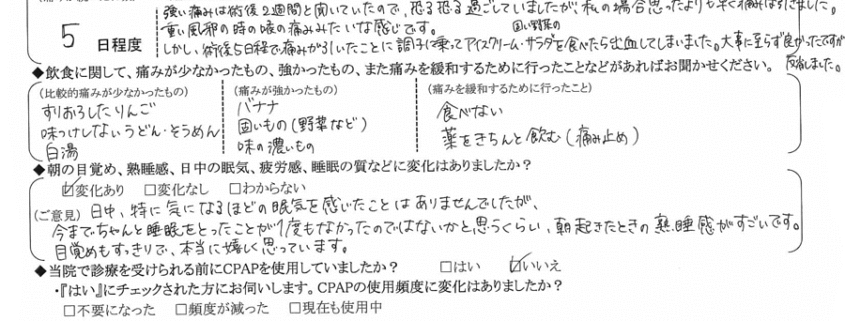 強い痛みは術後2週間と聞いていたので、恐る恐る過ごしていましたが、私の場合思ったよりも早く痛みは引きました。
5 日程度
重い風邪の時の喉の痛みみたいな感じです。
固い野菜の
しかし、術後5日程で痛みが引いたことに調子に乗ってアイスクリーム・サラダを食べたら出血してしまいました。大事に至らず良かったですが
反省しました。
◆飲食に関して、痛みが少なかったもの、強かったもの、また痛みを緩和するために行ったことなどがあればお聞かせください。
(比較的痛みが少なかったもの) (痛みが強かったもの) (痛みを緩和するために行ったこと)
すりおろしたりんご バナナ 食べない
味つけしないうどん・そうめん 固いもの(野菜など) 薬をきちんと飲む(痛み止め)
白湯 味の濃いもの
◆朝の目覚め、熟睡感、日中の眠気、疲労感、睡眠の質などに変化はありましたか?
☑変化あり □変化なし □わからない
(ご意見) 日中、特に気になるほどの眠気を感じたことはありませんでしたが、
今までちゃんと睡眠をとったことが1度もなかったのではないかと思うくらい、朝起きたときの熟睡感がすごいです。
目覚めもすっきりで、本当に嬉しく思っています。
◆当院で診療を受けられる前にCPAPを使用していましたか? □はい ☑いいえ
・『はい』にチェックされた方にお伺いします。CPAPの使用頻度に変化はありましたか?
□不要になった □頻度が減った □現在も使用中